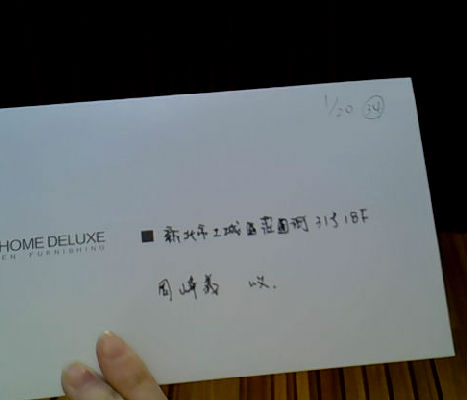 1/20 34
HOME DELUXE
EN FURNISHING
■ 新北市土城區莊園街31号18F
周峰義 收.